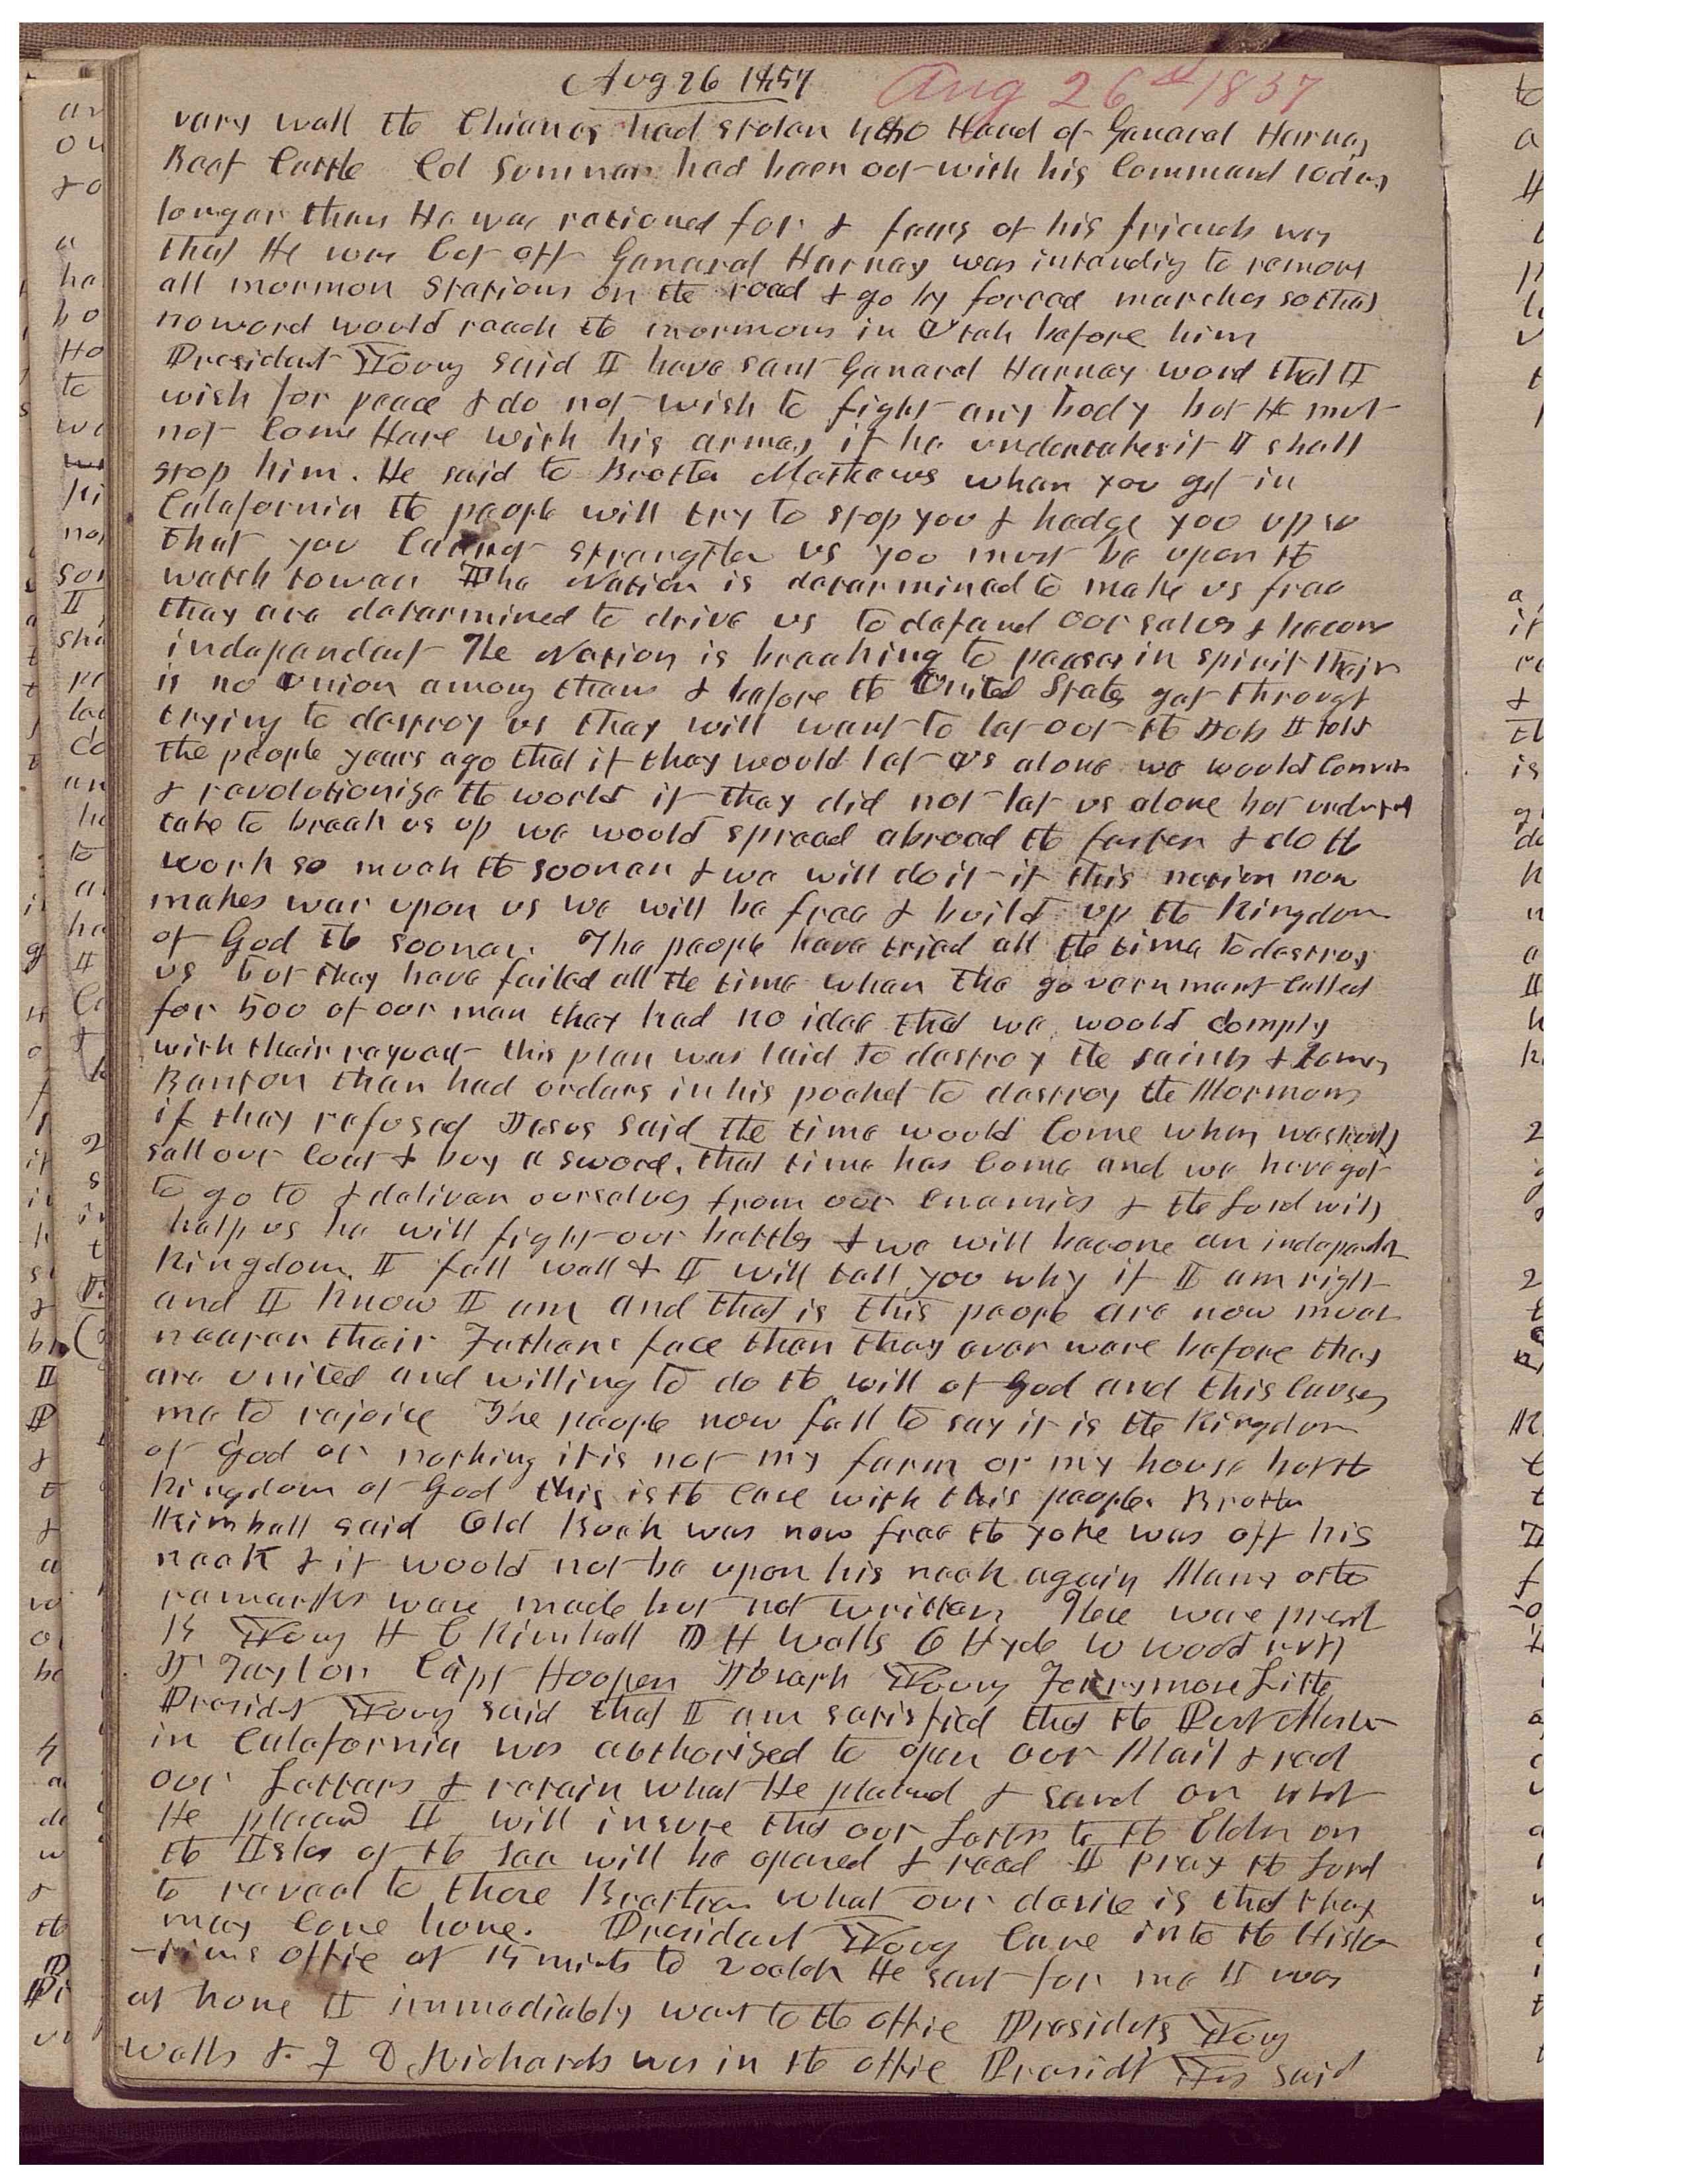 Aug 26 1857 Aug 26st 1857
vary well the Chianes had stolen 400 Head of General Harney
Beef Cattle Col Sumner had been out with his Command 10 days
longer than He was rationed for & fears of his friends was
that He was Cut off General Harney was intending to remove
all mormon Stations on the road & go by forced marches so that
no word would reach the mormons in Utah before him
President Young said I have sent General Harney word that I
wish for peace & do not wish to fight any body but He must
not Come Here with his army if he undertakes it I shall
stop him. He said to Brother Mathews when you get in
Calafornia the people will try to stop you & hedge you up so
that you Cannot strengthen us you must be upon the
watch towar The Nation is determined to make us free
they are determined to drive us to defend our selves & become
independent The Nation is breaking to peases in spirit their
is no Union among them & before the United States get through
trying to destroy us they will want to let out the Job I told
the people years ago that if they would let us alone we would Convert
& revolutionise the world if they did not let us alone but under
take to break us up we would spread abroad the faster & do the
work so much the sooner & we will do it if this nation now
makes war upon us we will be free & build up the Kingdom
of God the sooner. The people have tried all the time to destroy
us but they have failed all the time when the government Called
for 500 of our men they had no idea that we would Comply
with their request this plan was laid to destroy the saints & Tomey
Benton then had orders in his pocket to destroy the Mormons
if they refused Jesus said the time would Come when we should
sell our Coat & buy a sword. that time has Come and we have got
to go to & deliver ourselves from our Enemies & the Lord will
help us he will fight our battles & we will become an independant
Kingdom. I feel well & I will tell you why if I am right
and I know I am and that is this people are now much
nearer their Fathers face than they ever were before they
are united and willing to do the will of God and this Causes
me to rejoice The people now feel to say it is the Kingdom
of God or nothing it is not my farm or my house but the
Kingdom of God this is the Case with this people. Brother
Kimball said Old Buck was now free the yoke was off his
neck & it would not be upon his neck again Many other
remarks were made but not written There were present
B Young H C Kimball D H Wells O Hyde W Woodruff
J Taylor Capt Hooper Joseph Young Ferrymore Little
President Young said that I am satisfied that the Post Master
in Calafornia was authorised to open our Mail & read
our Letters & retain what He pleased & send on what
He pleased I will insure that our Letters to the Elders on
the Isles of the Sea will be opened & read I pray the Lord
to reveal to those Brethren what our desire is that they
may Come home. President Young Came into the Histo
-rians office at 15 minuts to 2 oclok He sent for me I was
at home I immediately went to the office Presidets Young
Wells & F D Richards was in the office Presidt Young said